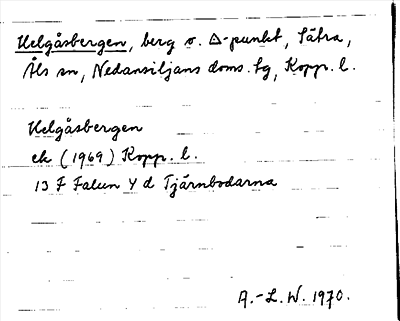 Helgåsbergen, berg o. △-punkt, Sätra,
Åls sn, Nedansiljans doms. tg, Kopp. l.
Helgåsbergen
ek (1969) Kopp. l.
13 F Falun Y d Tjärnbodarna
A.-L. W. 1970.